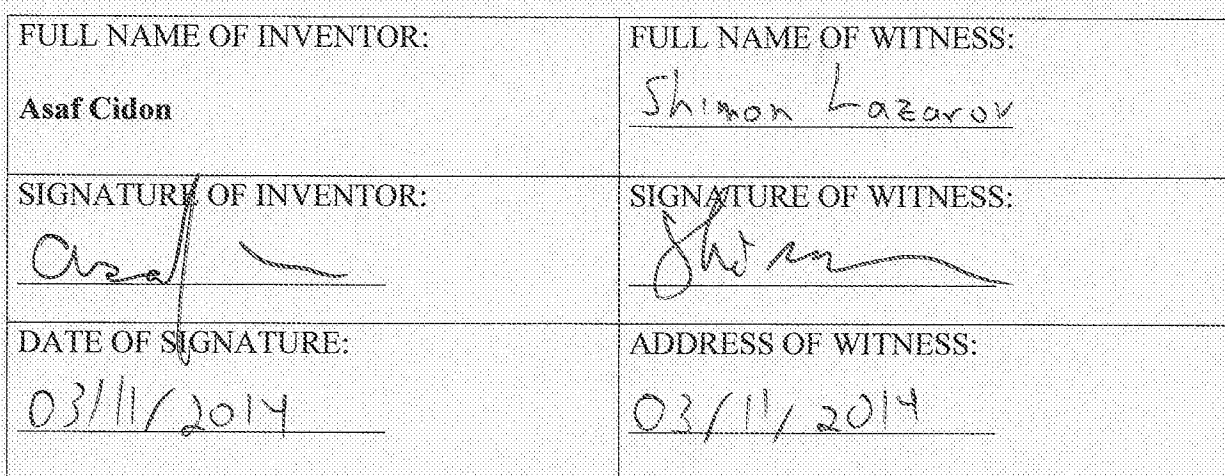 FULL NAME OF INVENTOR:
Asaf Cidon
FULL NAME OF WITNESS:
Shimon Lazarov
SIGNATURE OF INVENTOR:
Asaf
SIGNATURE OF WITNESS:
Shimon
DATE OF SIGNATURE:
03/11/2014
ADDRESS OF WITNESS:
03/11/2014